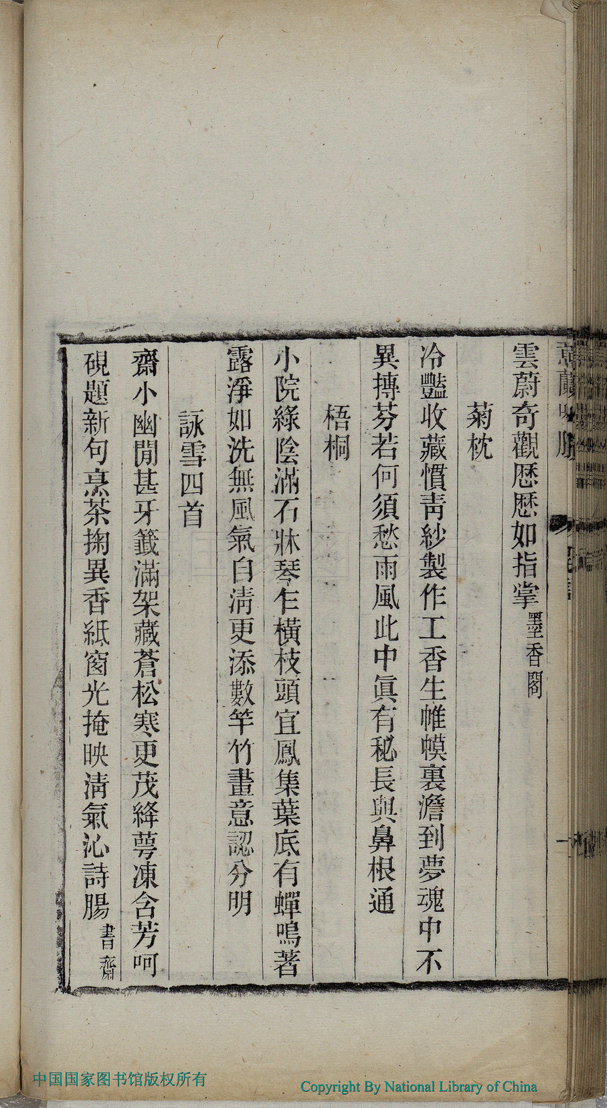 雲蔚奇觀歷歷如指掌墨香閣
菊枕
冷豔收藏慣靑紗製作工香生帷幙裏澹到夢魂中不
異摶芬若何須愁雨風此中眞有秘長與鼻根通
梧桐
小院綠陰滿石牀琴乍橫枝頭宜鳳集葉底有蟬鳴著
露淨如洗無風氣自淸更添數竿竹畫意認分明
詠雪四首
齋小幽閒甚牙籤滿架藏蒼松寒更茂絳萼凍含芳呵
硯題新句烹茶掬異香紙窗光掩映淸氣沁詩腸書齋
中国国家图书馆版权所有
Copyright By National Library of China